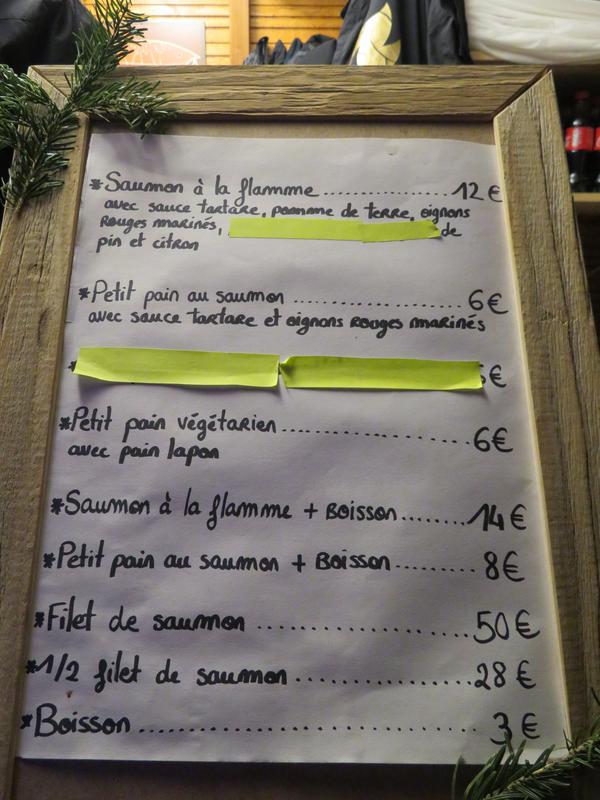 *Saumon à la flamme ................ 12 €
avec sauce tartare, pomme de terre, oignons
Rouges marinés, de
pin et citron
*Petit pain au saumon .................. 6€
avec sauce tartare et oignons Rouges marinés
*
€
*Petit pain végétarien .................. 6€
avec pain lapon
*Saumon à la flamme + Boisson ....... 14 €
*Petit pain au saumon + Boisson ......... 8€
*Filet de saumon .................. 50€
*1/2 filet de saumon .............. 28 €
*Boisson .............................. 3 €